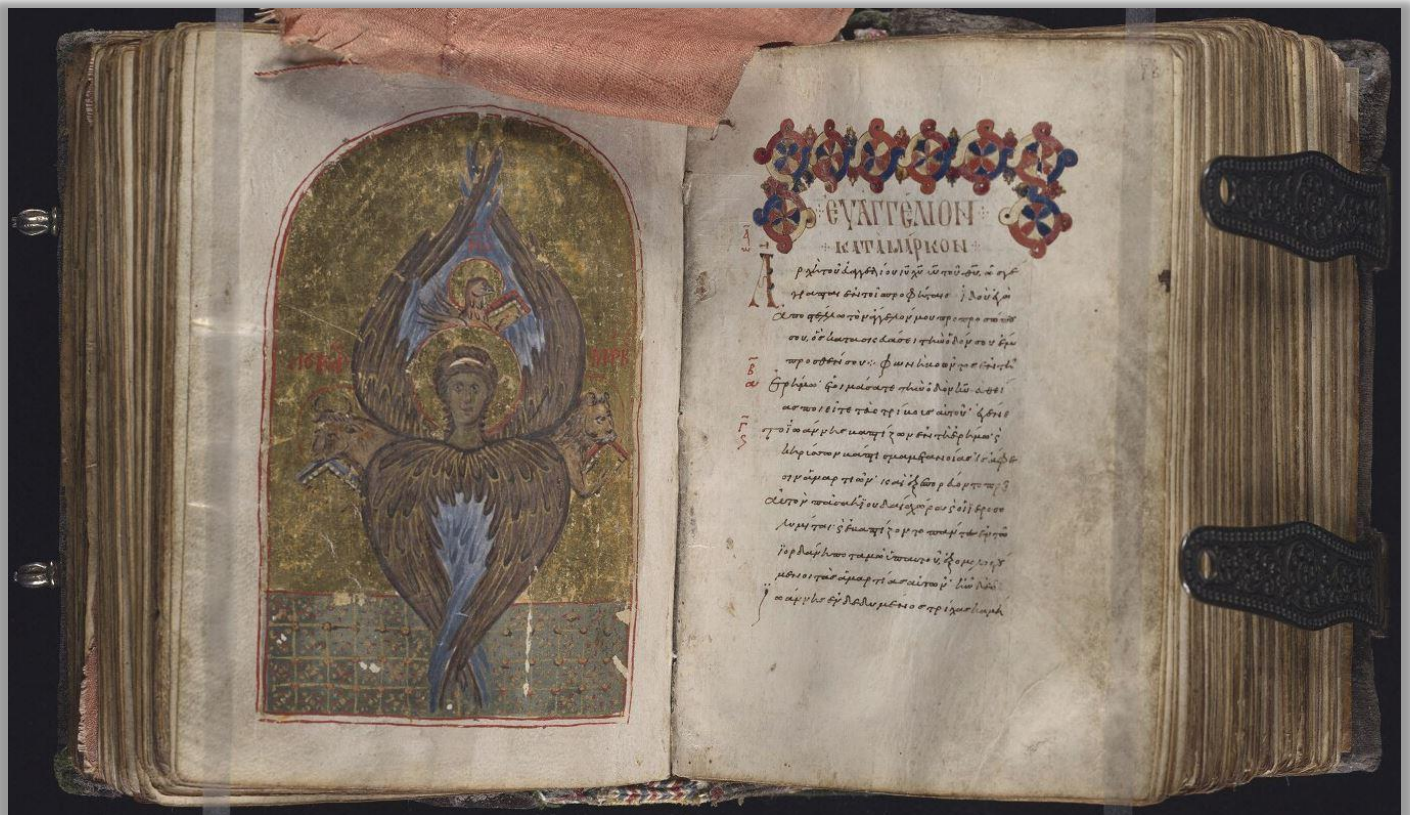 ΜΑΡΚ
ΕΥΑΓΓΕΛΙΟΝ
ΚΑΤΑ ΜΑΡΚΟΝ
Ἀρχὴ τοῦ εὐαγγελίου ἰῦ χῦ υἱοῦ τοῦ θῦ, ὡς γέ
γραπται ἐν τοῖς προφήταις· ἰδοὺ ἐγὼ
ἀποστέλλω τὸν ἄγγελόν μου πρὸ προσώπου
σου, ὃς κατασκευάσει τὴν ὁδόν σου ἔμ
προσθέν σου· φωνὴ βοῶντος ἐν τῇ
ἐρήμῳ· ἑτοιμάσατε τὴν ὁδὸν κῦ εὐθεί
ας ποιεῖτε τὰς τρίβους αὐτοῦ· ἐγένε
το ἰωάννης βαπτίζων ἐν τῇ ἐρήμῳ ϛ
κηρύσσων βάπτισμα μετανοίας εἰς ἄφε
σιν ἁμαρτιῶν· καὶ ἐξεπορεύοντο πρὸς
αὐτὸν πᾶσα ἡ ἰουδαία χώρα ϛ οἱ ἱεροσο
λυμῖται· ϛ ἐβαπτίζοντο πάντες ἐν τῷ
ἰορδάνῃ ποταμῷ ὑπ' αὐτοῦ, ἐξομολογού
μενοι τὰς ἁμαρτίας αὐτῶν· ἦν δὲ ἰ
ωάννης ἐνδεδυμένος τρίχας καμή